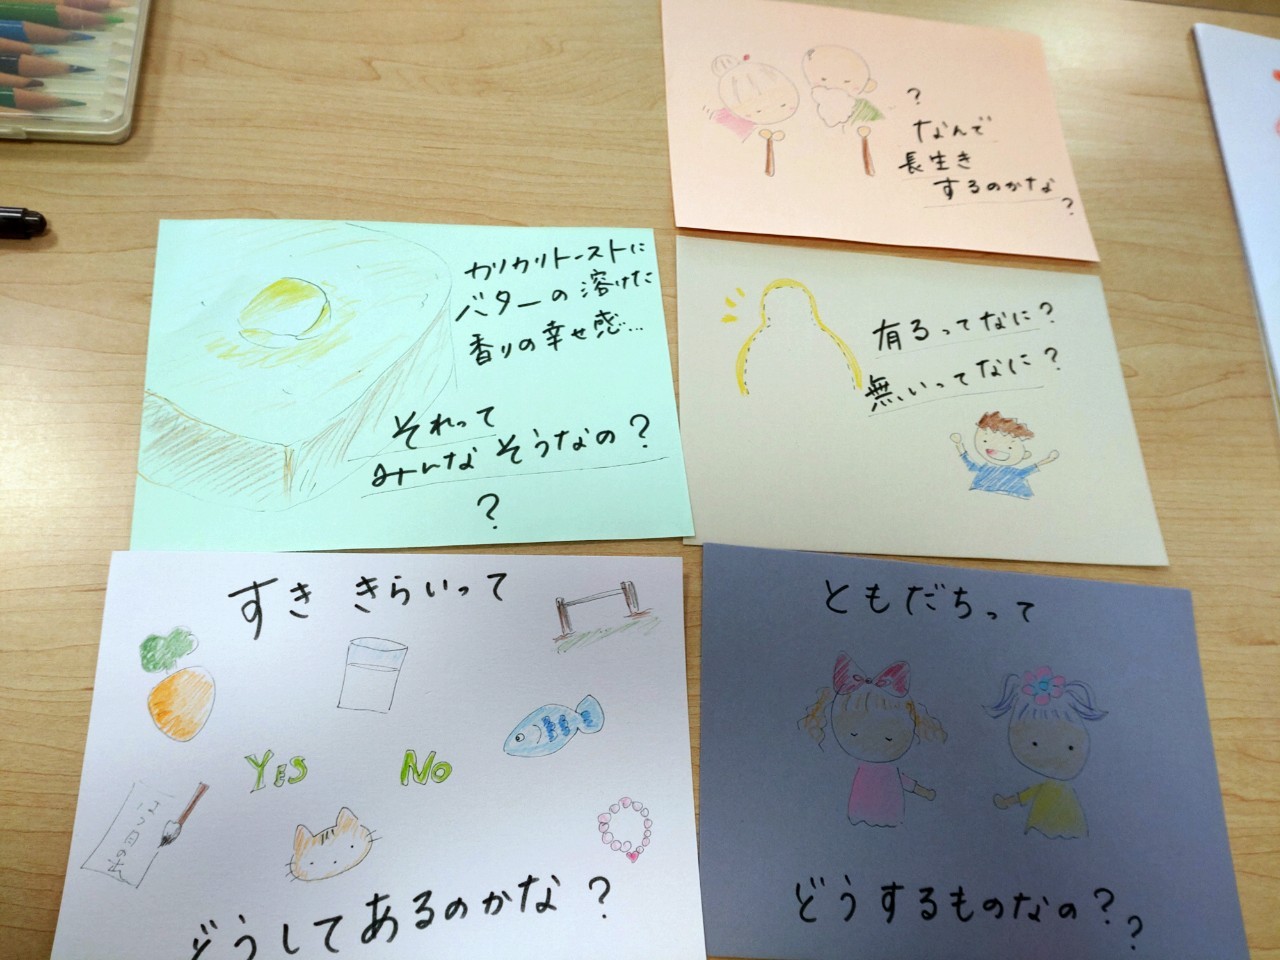 ?
なんで
長生き
するのかな
?
カリカリトーストに
バターの溶けた
香りの幸せ感...
それって
みんなそうなの?
?
有るってなに?
無いってなに?
すき きらいって
YES NO
どうしてあるのかな?
ともだちって
どうするものなの?
?